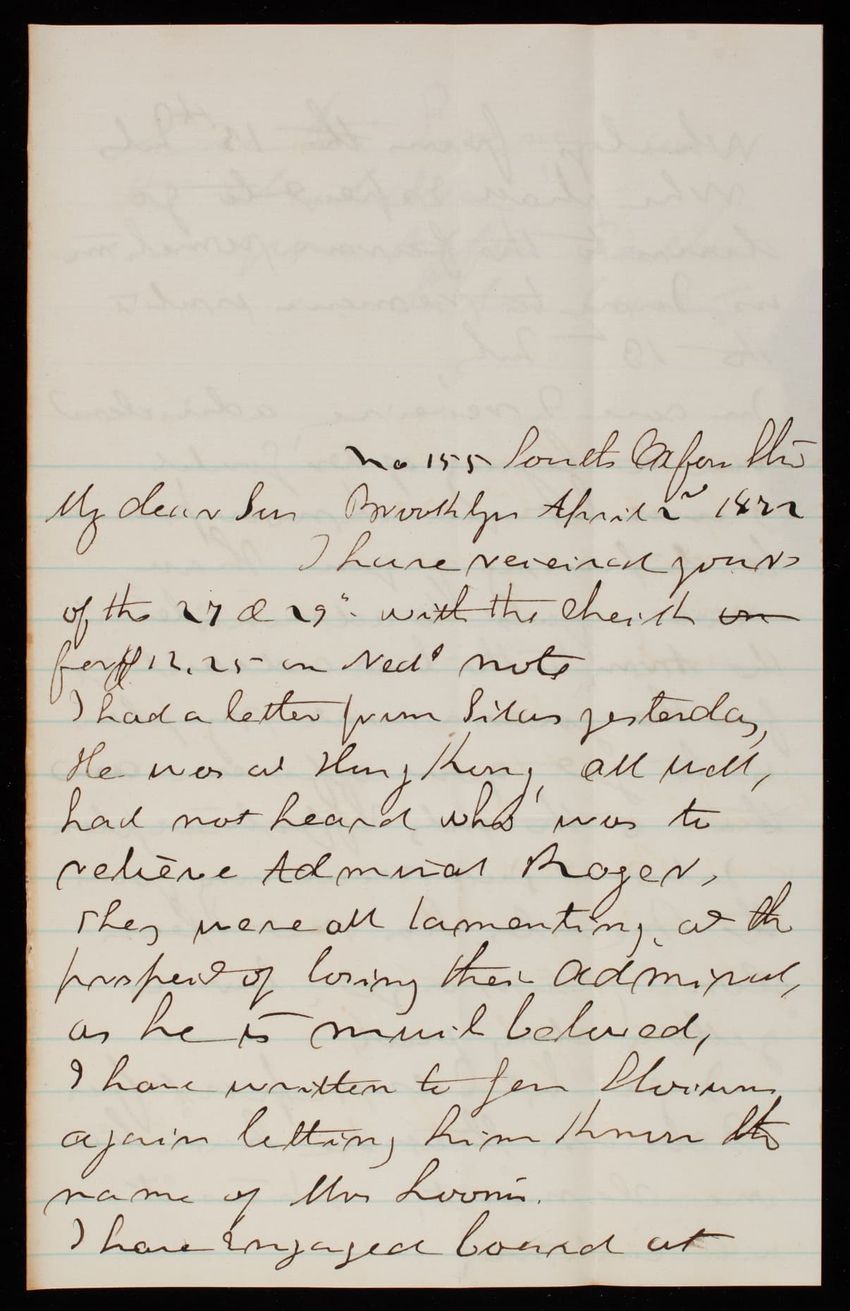 No 155 South Oxford St
My dear Son Brooklyn April 2d 1872
I have received yours
of the 27 & 29". with the check
for $12.25 on Ned's note
I had a letter from Silas yesterday,
He was at Hong Kong, all well,
had not heard who was to
relieve Admiral Roger,
They were all lamenting, at the
prospect of losing their Admiral,
as he is much beloved,
I have written to Gen
again letting him know the
name of Mrs Loomis.
I have engaged board at